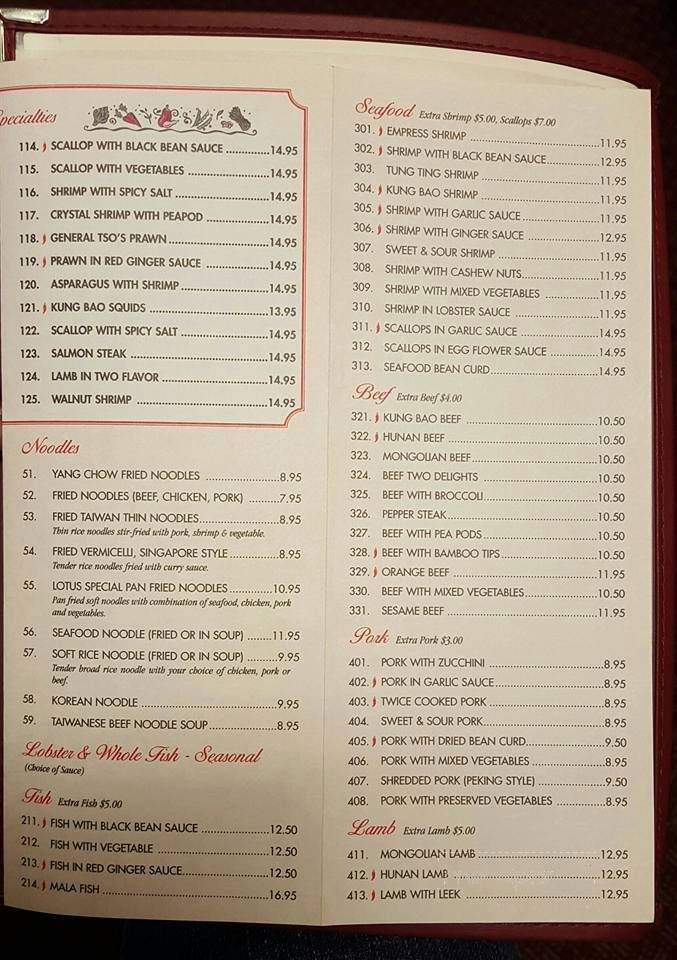 Specialties
114. SCALLOP WITH BLACK BEAN SAUCE ............14.95
115. SCALLOP WITH VEGETABLES ............14.95
116. SHRIMP WITH SPICY SALT ............14.95
117. CRYSTAL SHRIMP WITH PEAPOD ............14.95
118. GENERAL TSO'S PRAWN ............14.95
119. PRAWN IN RED GINGER SAUCE ............14.95
120. ASPARAGUS WITH SHRIMP ............14.95
121. KUNG BAO SQUIDS ............13.95
122. SCALLOP WITH SPICY SALT ............14.95
123. SALMON STEAK ............14.95
124. LAMB IN TWO FLAVOR ............14.95
125. WALNUT SHRIMP ............14.95
Noodles
51. YANG CHOW FRIED NOODLES ............8.95
52. FRIED NOODLES (BEEF, CHICKEN, PORK) ............7.95
53. FRIED TAIWAN THIN NOODLES ............8.95
Thin rice noodles stir-fried with pork, shrimp & vegetable.
54. FRIED VERMICELLI, SINGAPORE STYLE ............8.95
Tender rice noodles fried with curry sauce.
55. LOTUS SPECIAL PAN FRIED NOODLES ............10.95
Pan fried soft noodles with combination of seafood, chicken, pork
and vegetables.
56. SEAFOOD NOODLE (FRIED OR IN SOUP) ........11.95
57. SOFT RICE NOODLE (FRIED OR IN SOUP) ........9.95
Tender broad rice noodle with your choice of chicken, pork or
beef.
58. KOREAN NOODLE ............9.95
59. TAIWANESE BEEF NOODLE SOUP ............8.95
Lobster & Whole Fish - Seasonal
(Choice of Sauce)
Fish Extra Fish $5.00
211. FISH WITH BLACK BEAN SAUCE ............12.50
212. FISH WITH VEGETABLE ............12.50
213. FISH IN RED GINGER SAUCE ............12.50
214. MALA FISH ............16.95
Seafood Extra Shrimp $5.00, Scallops $7.00
301. EMPRESS SHRIMP ............11.95
302. SHRIMP WITH BLACK BEAN SAUCE ............12.95
303. TUNG TING SHRIMP ............11.95
304. KUNG BAO SHRIMP ............11.95
305. SHRIMP WITH GARLIC SAUCE ............11.95
306. SHRIMP WITH GINGER SAUCE ............12.95
307. SWEET & SOUR SHRIMP ............11.95
308. SHRIMP WITH CASHEW NUTS ............11.95
309. SHRIMP WITH MIXED VEGETABLES ............11.95
310. SHRIMP IN LOBSTER SAUCE ............11.95
311. SCALLOPS IN GARLIC SAUCE ............14.95
312. SCALLOPS IN EGG FLOWER SAUCE ............14.95
313. SEAFOOD BEAN CURD ............14.95
Beef Extra Beef $4.00
321. KUNG BAO BEEF ............10.50
322. HUNAN BEEF ............10.50
323. MONGOLIAN BEEF ............10.50
324. BEEF TWO DELIGHTS ............10.50
325. BEEF WITH BROCCOLI ............10.50
326. PEPPER STEAK ............10.50
327. BEEF WITH PEA PODS ............10.50
328. BEEF WITH BAMBOO TIPS ............10.50
329. ORANGE BEEF ............11.95
330. BEEF WITH MIXED VEGETABLES ............10.50
331. SESAME BEEF ............11.95
Pork Extra Pork $3.00
401. PORK WITH ZUCCHINI ............8.95
402. PORK IN GARLIC SAUCE ............8.95
403. TWICE COOKED PORK ............8.95
404. SWEET & SOUR PORK ............8.95
405. PORK WITH DRIED BEAN CURD ............9.50
406. PORK WITH MIXED VEGETABLES ............8.95
407. SHREDDED PORK (PEKING STYLE) ............9.50
408. PORK WITH PRESERVED VEGETABLES ............8.95
Lamb Extra Lamb $5.00
411. MONGOLIAN LAMB ............12.95
412. HUNAN LAMB ............12.95
413. LAMB WITH LEEK ............12.95